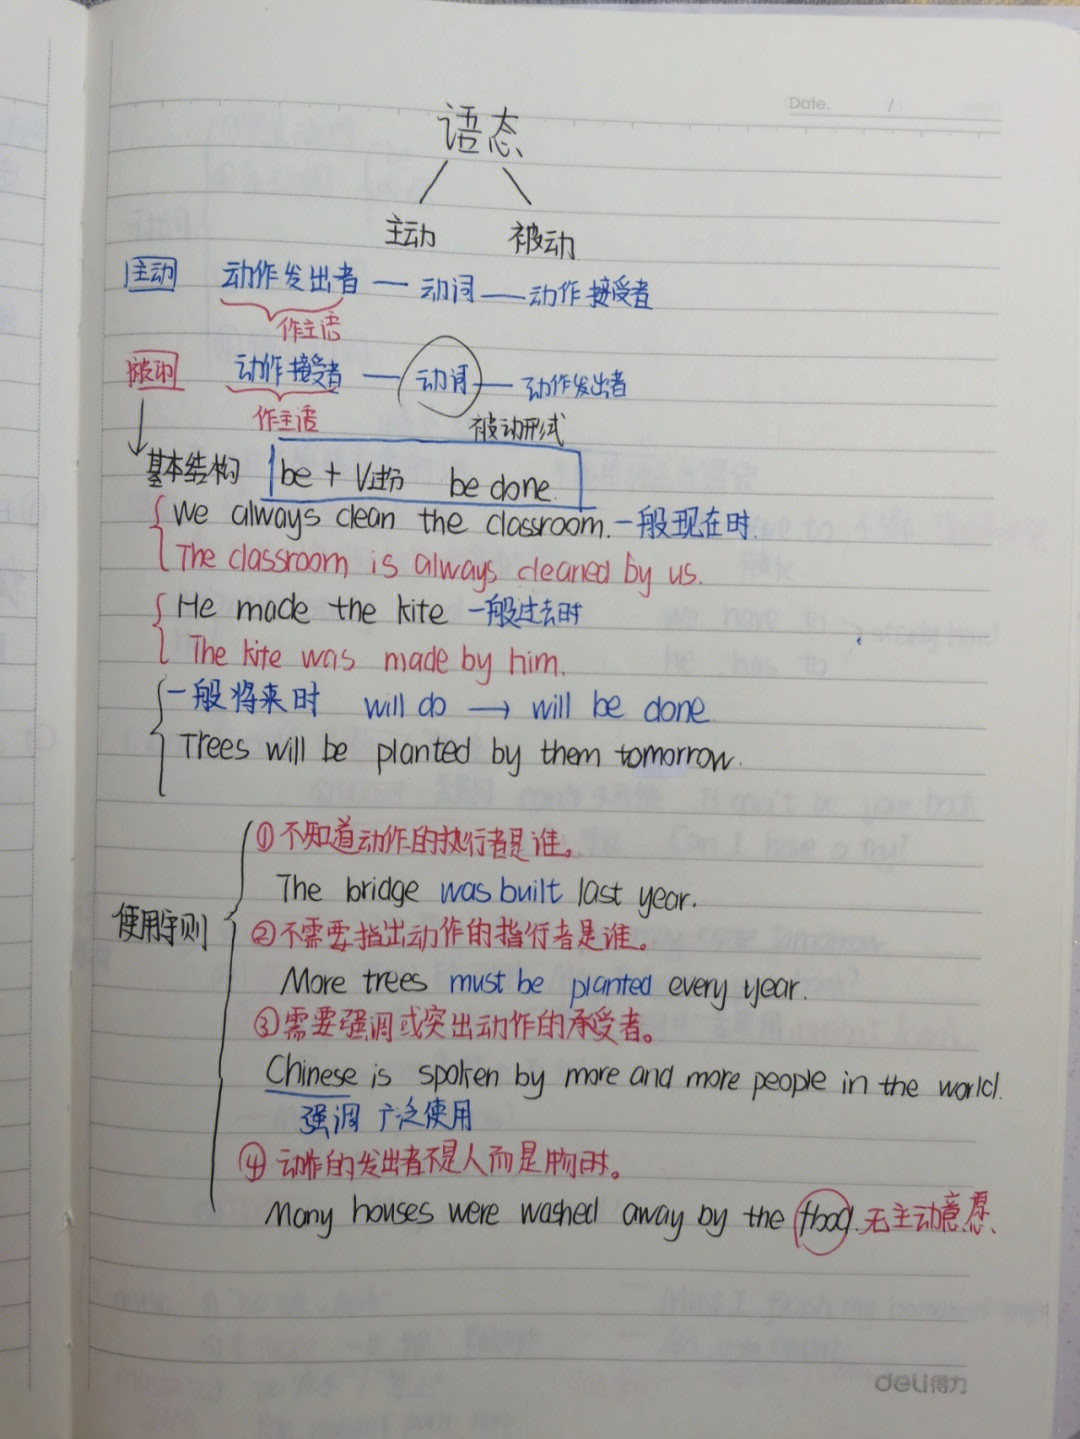 Date. /
语态
主动 被动
主动 动作发出者 — 动词 — 动作接受者
作主语
被动 动作接受者 — 动词 — 动作发出者
作主语 被动形式
基本结构 be + V过分 be done.
We always clean the classroom. 一般现在时.
The classroom is always cleaned by us.
He made the kite 一般过去时
The kite was made by him.
一般将来时 will do → will be done
Trees will be planted by them tomorrow.
①不知道动作的执行者是谁。
The bridge was built last year.
使用守则
②不需要指出动作的指行者是谁。
More trees must be planted every year.
③需要强调或突出动作的承受者。
Chinese is spoken by more and more people in the world.
强调 广泛使用
④动作的发出者不是人而是物时。
Many houses were washed away by the flood. 无主动意愿、
deli得力